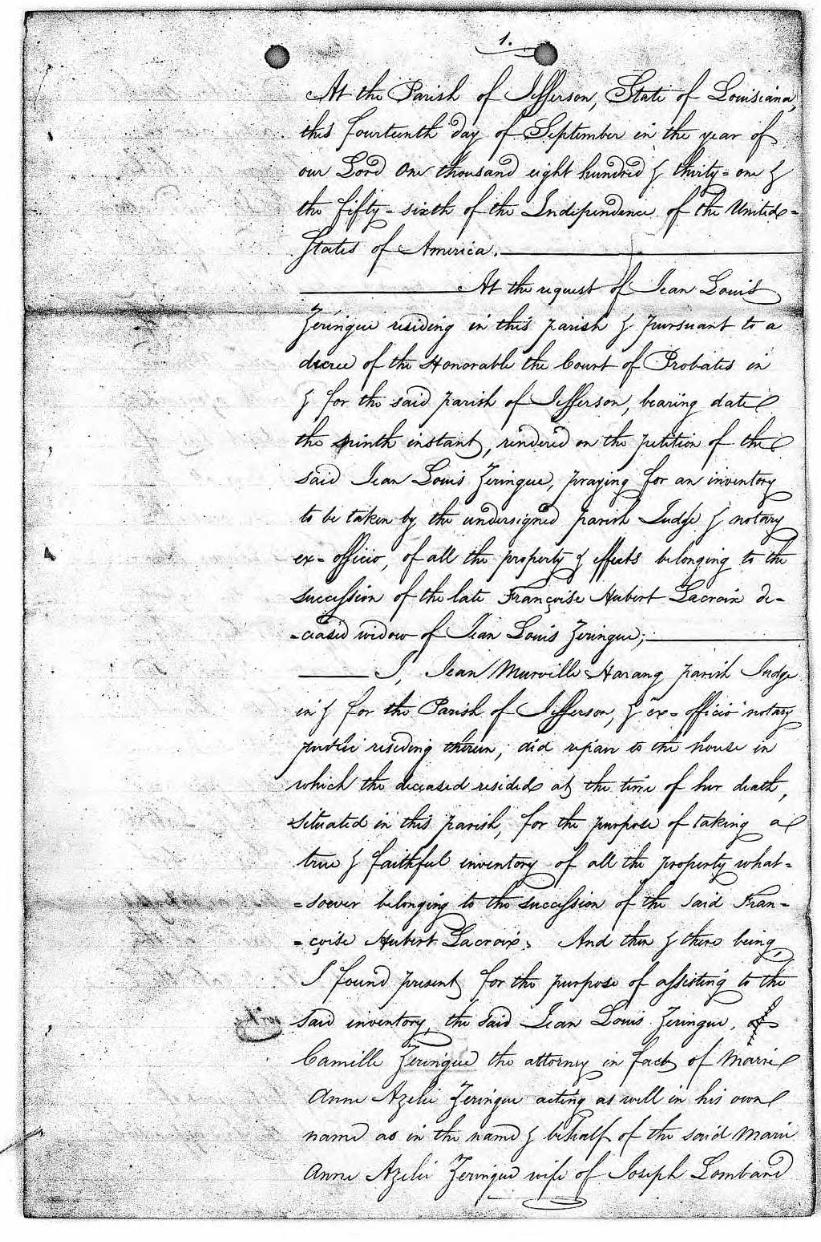 1.
At the Parish of Jefferson, State of Louisiana,
this fourteenth day of September in the year of
our Lord One thousand eight hundred & thirty-one &
the fifty-sixth of the Independence of the United=
States of America.
At the request of Jean Louis
Zeringue residing in this parish & pursuant to a
decree of the Honorable the Court of Probates in
& for the said parish of Jefferson, bearing date
the ninth instant, rendered on the petition of the
said Jean Louis Zeringue, praying for an inventory
to be taken by the undersigned parish Judge & notary
ex-officio, of all the property & effects belonging to the
succession of the late Françoise Hubert Lacroix de=
=ceased widow of Jean Louis Zeringue;
I, Jean Murville Harang parish Judge
in & for the Parish of Jefferson, & ex-officio notary
public residing therein, did repair to the house in
which the deceased resided at the time of her death,
situated in this parish, for the purpose of taking a
true & faithful inventory of all the property what=
=soever belonging to the succession of the said Fran=
=çoise Hubert Lacroix. And then & there being,
I found present for the purpose of assisting to the
said inventory, the said Jean Louis Zeringue,
Camille Zeringue the attorney in fact of Marie
Anne Azelie Zeringue acting as well in his own
name as in the name & behalf of the said Marie
Anne Azelie Zeringue wife of Joseph Lombard